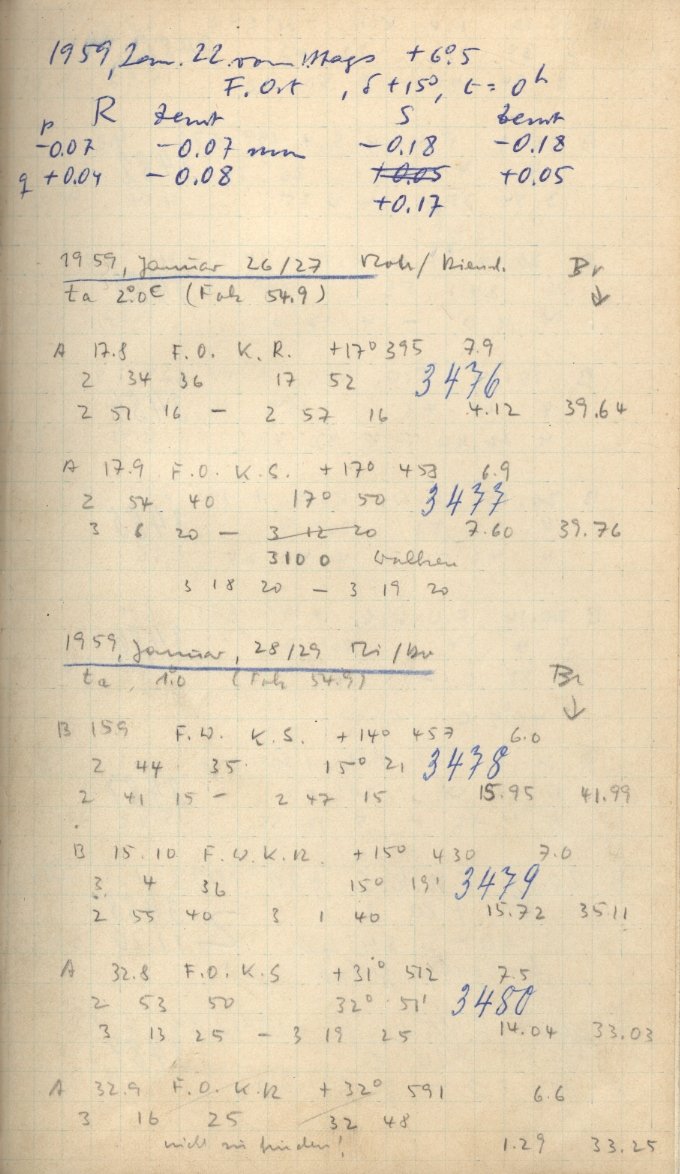 1959, Jan. 22. vormittags +6°.5
F. Ort, δ+15°, t = 0h
p R Zenit S Zenit
-0.07 -0.07 mm -0.18 -0.18
q +0.04 -0.08 +0.05 +0.05
+0.17
1959, Januar 26/27 Br
ta 2°.0 C (Fok 54.9) ↓
A 17.8 F.O. K.R. +17° 395 7.9
2 34 36 17 52 3476
2 51 16 - 2 57 16 4.12 39.64
A 17.9 F.O. K.S. +17° 453 6.9
2 54 40 17° 50 3477
3 6 20 - 3 12 20 7.60 39.76
3 10 0 Wolken
3 18 20 - 3 19 20
1959, Januar, 28/29 Mi/Do
ta 1°.0 (Fok 54.9) Br
↓
B 15.9 F.W. K.S. +14° 457 6.0
2 44 35 15° 21 3478
2 41 15 - 2 47 15 15.95 41.99
B 15.10 F.W. K.R. +15° 430 7.0
3 4 36 15° 19' 3479
2 55 40 - 3 1 40 15.72 35.11
A 32.8 F.O. K.S +31° 512 7.5
2 53 50 32° 51' 3480
3 13 25 - 3 19 25 14.04 33.03
A 32.9 F.O. K.R +32° 591 6.6
3 16 25 32 48
nicht zu finden! 1.29 33.25